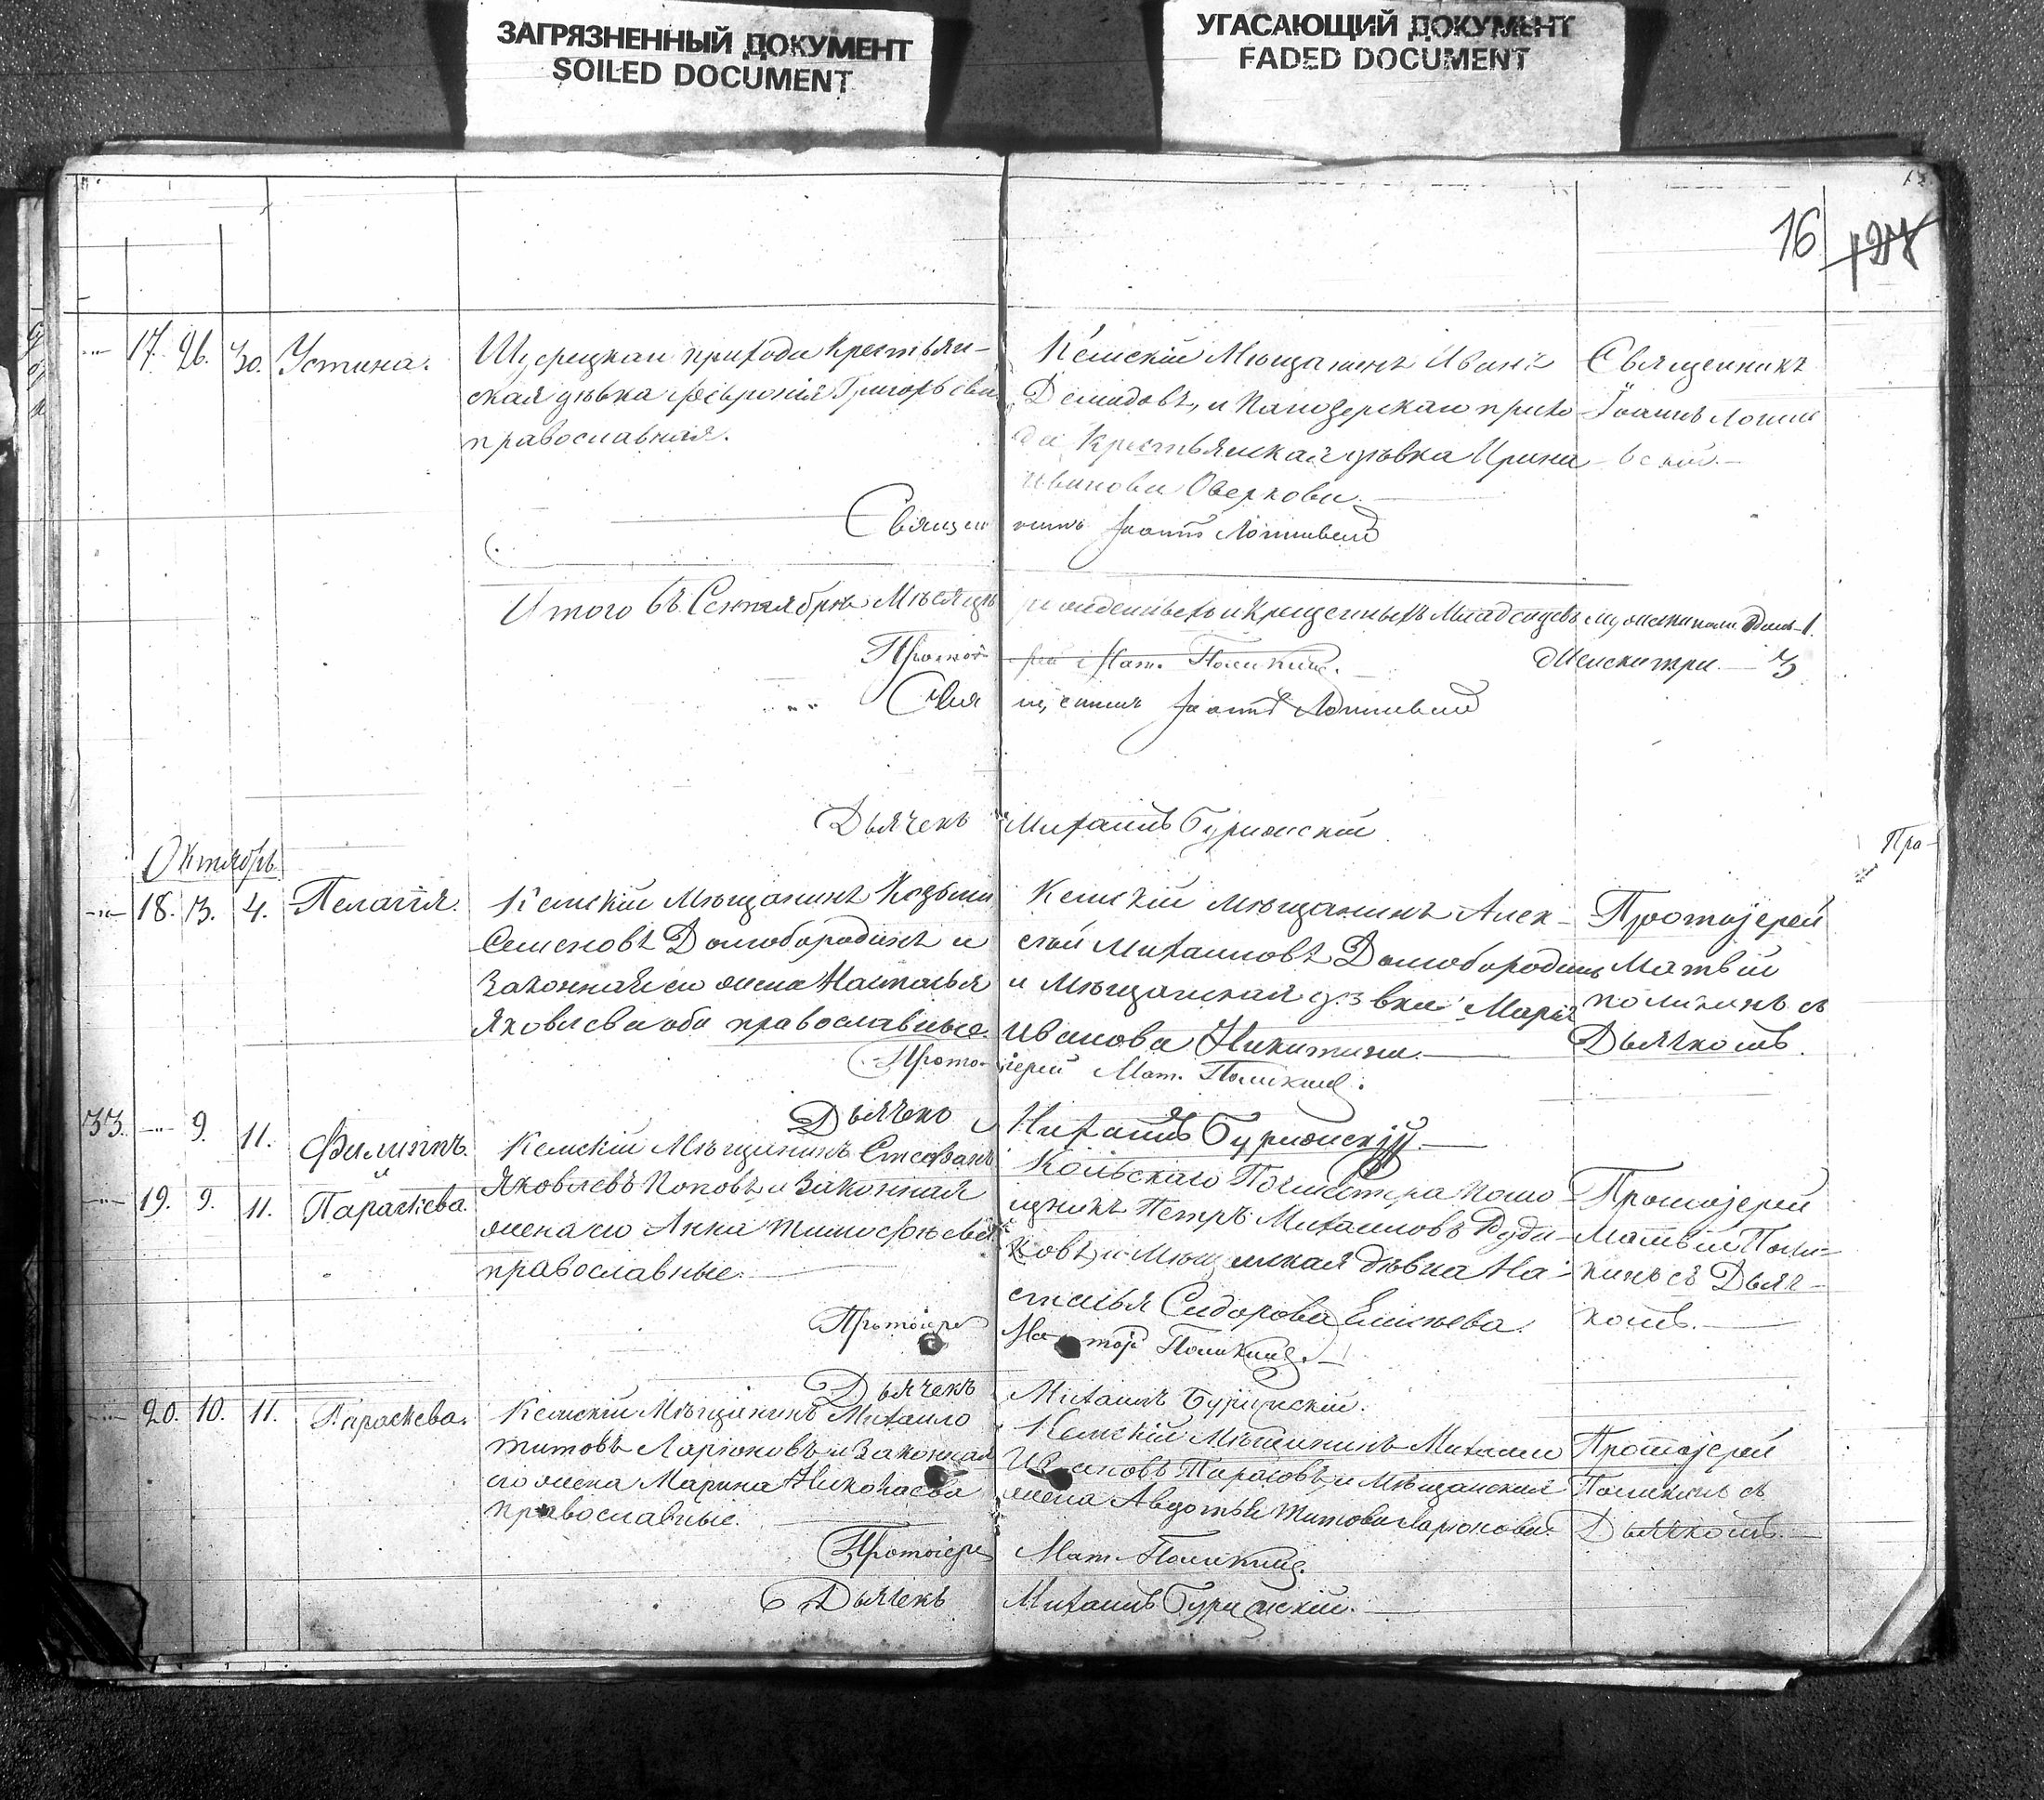 ЗАГРЯЗНЕННЫЙ ДОКУМЕНТ
SOILED DOCUMENT
УГАСАЮЩИЙ ДОКУМЕНТ
FADED DOCUMENT
16
17. 26. 30. Устина.
Шуерецкаго прихода крестьян-
ская дѣвка Февронія Григорьева
православная.
Кемскій Мѣщанинъ Иванъ
Демидовъ, и Панозерскаго прихо
да Крестьянская дѣвка Ирина
Иванова Оверкова.
Священникъ
Іоаннъ
Священникъ Іоаннъ
Итого въ Сентябрѣ Мѣсяцѣ рожденныхъ и крещенныхъ Младенцевъ мужеска пола одинъ 1.
Женска три. 3
Протоіерей Мат. Поликинъ.
Священникъ Іоаннъ
Дьячекъ Михаилъ
Октябрь
18. 3. 4. Пелагія.
Кемскій Мѣщанинъ Козьма
Семеновъ Долгобородинъ и
Законная его жена Наталья
Яковлева оба православные.
Кемскій мѣщанинъ Алек-
сѣй Михаиловъ Долгобородинъ
и Мѣщанская дѣвка Марья
Иванова Никитина.
Протоіерей
Матвѣй
Поликинъ съ
Дьячкомъ.
Протоіерей Мат. Поликинъ.
Дьячекъ Михаилъ
33. 9. 11. Филиппъ.
и
19. 9. 11. Параскева.
Кемскій Мѣщанинъ Стефанъ
Яковлевъ Поповъ и Законная
жена его Анна Тимофѣева
православные.
Кольскаго Почмейстера помо
щникъ Петръ Михаиловъ
ковъ, и Мѣщанская дѣвка На-
сталья Сидорова Елисѣева.
Протоіерей
Матвѣй Поли-
кинъ съ Дьяч-
комъ.
Протоіерей Поликинъ.
Дьячекъ Михаилъ
20. 10. 11. Параскева.
Кемскій Мѣщанинъ Михайло
Титовъ Ларіоновъ и Законная
его жена Марина Николаева
православные.
Кемскій Мѣщанинъ Михайло
Ивановъ Тарасовъ, и Мѣщанская
жена Авдотья Титова Ларіонова.
Протоіерей
Поликинъ съ
Дьячкомъ.
Протоіерей Мат. Поликинъ.
Дьячекъ Михаилъ